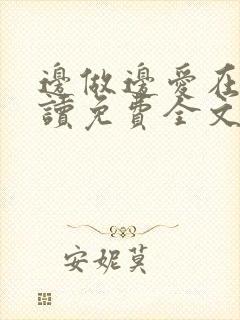 邊做邊愛在
讀免費全文
安妮莫